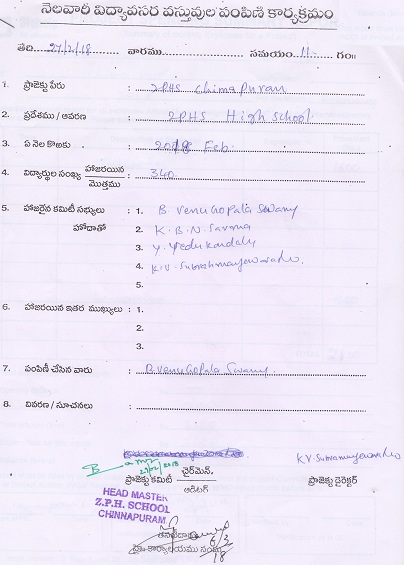 నెలవారీ విద్యావసర వస్తువుల పంపిణి కార్యక్రమం
తది.....27/2/18..... వారము..................... సమయం.11-.... గం॥
1. ప్రాజెక్టు పేరు : ZPHS Chinapuram
2. ప్రదేశము / ఆవరణ : ZPHS High School.
3. ఏ నెల కొఱకు : 2018 Feb.
4. విద్యార్థుల సంఖ్య హాజరయిన / మొత్తము : 340
5. హాజరైన కమిటీ సభ్యులు : 1. B. Venu Gopala Swamy
హోదాతో 2. K. B. N. Sarma
3. Y. Yedukondalu
4. K.V. Subrahmanyeswarao.
5.
6. హాజరయిన ఇతర ముఖ్యులు : 1.
2.
3.
7. పంపిణీ చేసిన వారు : B. Venu Gopala Swamy
8. వివరణ / సూచనలు :
27/02/2018
K V Subramanyeswarao
ప్రాజెక్టు కమిటీ చైర్‌మెన్. ప్రాజెక్టు డైరెక్టర్
ఆడిటర్
HEAD MASTER
Z.P.H. SCHOOL
CHINNAPURAM
6/3/18